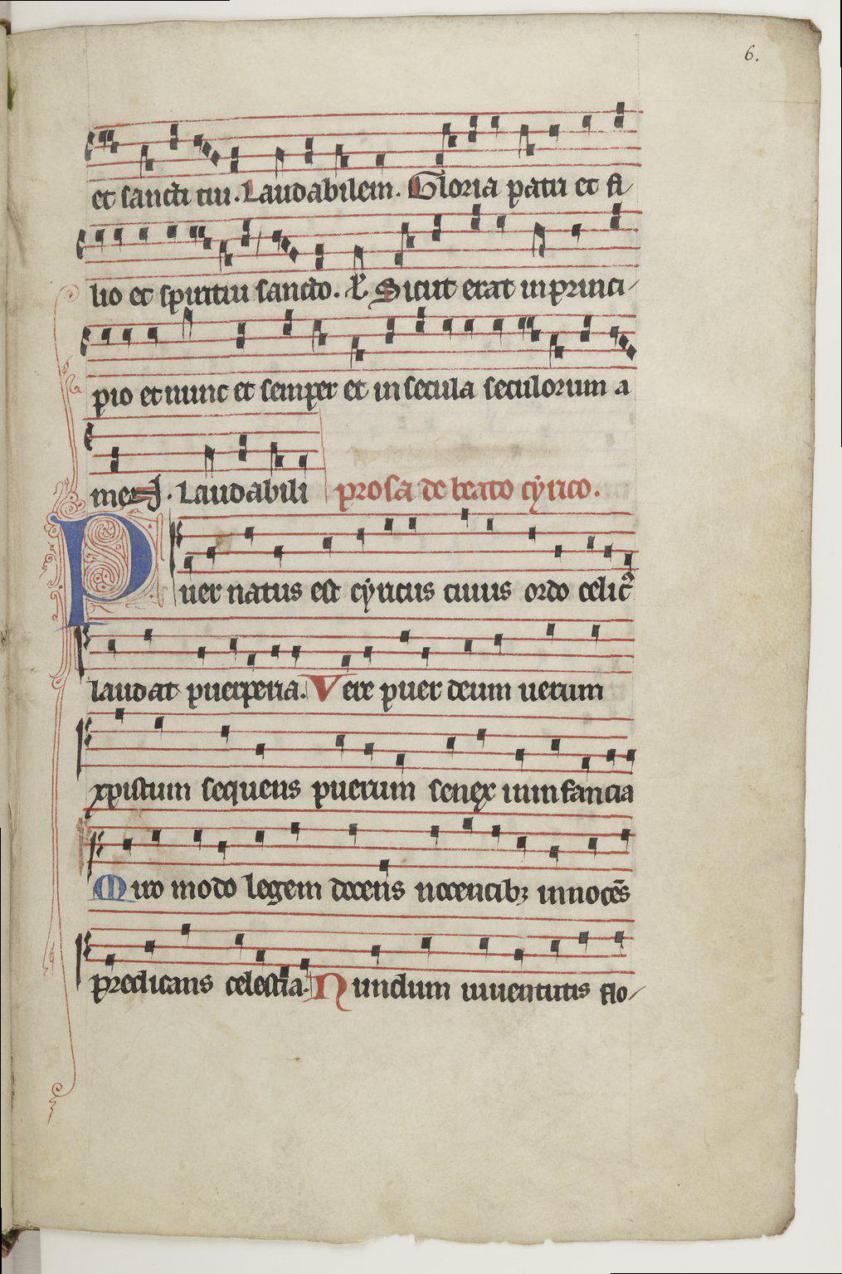 6.
et sancti tui. Laudabilem. Gloria patri et fi
lio et spiritui sancto. ℣ Sicut erat in princi
pio et nunc et semper et in secula seculorum a
men. Laudabili prosa de beato cyrico.
Puer natus est cyricus cuius ordo celic9
laudat puerperia. Vere puer deum uerum
xpistum sequens puerum senex in infancia
Miro modo legem docens nocencibꝫ innocēs
predicans celestia. Nundum iuuentutis flo